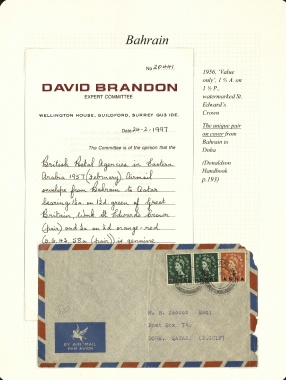 Bahrain
No 20441
DAVID BRANDON
EXPERT COMMITTEE
WELLINGTON HOUSE, GUILDFORD, SURREY GU3 IDE.
Date 24-2-1997
The Committee is of the opinion that the
British Postal Agencies in Eastern
Arabia 1957 (February) Airmail
envelope from Bahrain to Qatar
bearing on green of Great
Britain, St Edwards Crown
(pair) and on orange-red
(pair) is genuine
1956, 'Value
only', 1 ½ A. on
1 ½ P.,
watermarked St.
Edward's
Crown
The unique pair
on cover from
Bahrain to
Doha
(Donaldson
Handbook
p.193)
BY AIR MAIL
PAR AVION
Post Box 74,
DOHA, QATAR. (P.GULF)